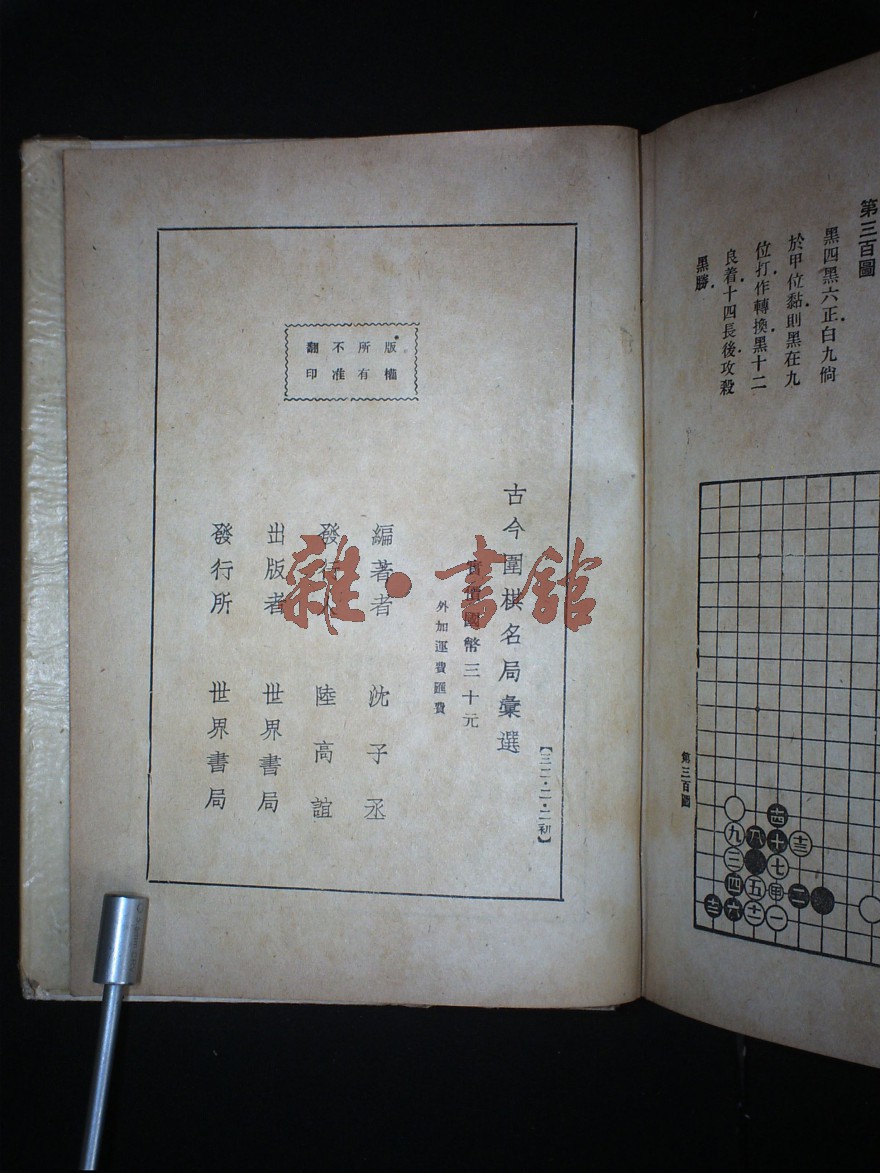 第三百圖
黑四黑六正白九倘
於甲位黏則黑在九
位打作轉換黑十二
良着十四長後攻殺
黑勝
第三百圖
九
八
十
十三
三
七
四
五
甲
二
六
十一
一
版權
所有
不准
翻印
【三二·二·二初】
古今圍棋名局彙選
實價國幣三十元
外加運費匯費
編著者 沈子丞
發行人 陸高誼
出版者 世界書局
發行所 世界書局
雜·書館